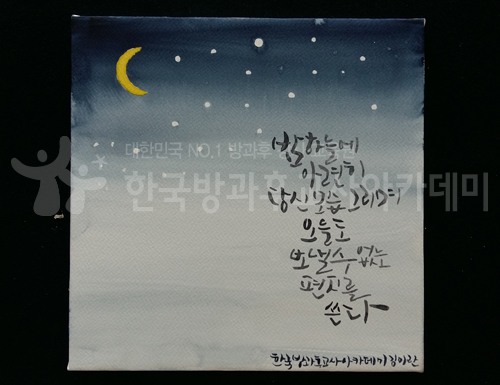 밤하늘에
아련히
당신 모습 그리며
오늘도
보낼수 없는
편지를
쓴다
한국방과후교사아카데미 김미란
대한민국 NO.1 방과후
한국방과후교사아카데미